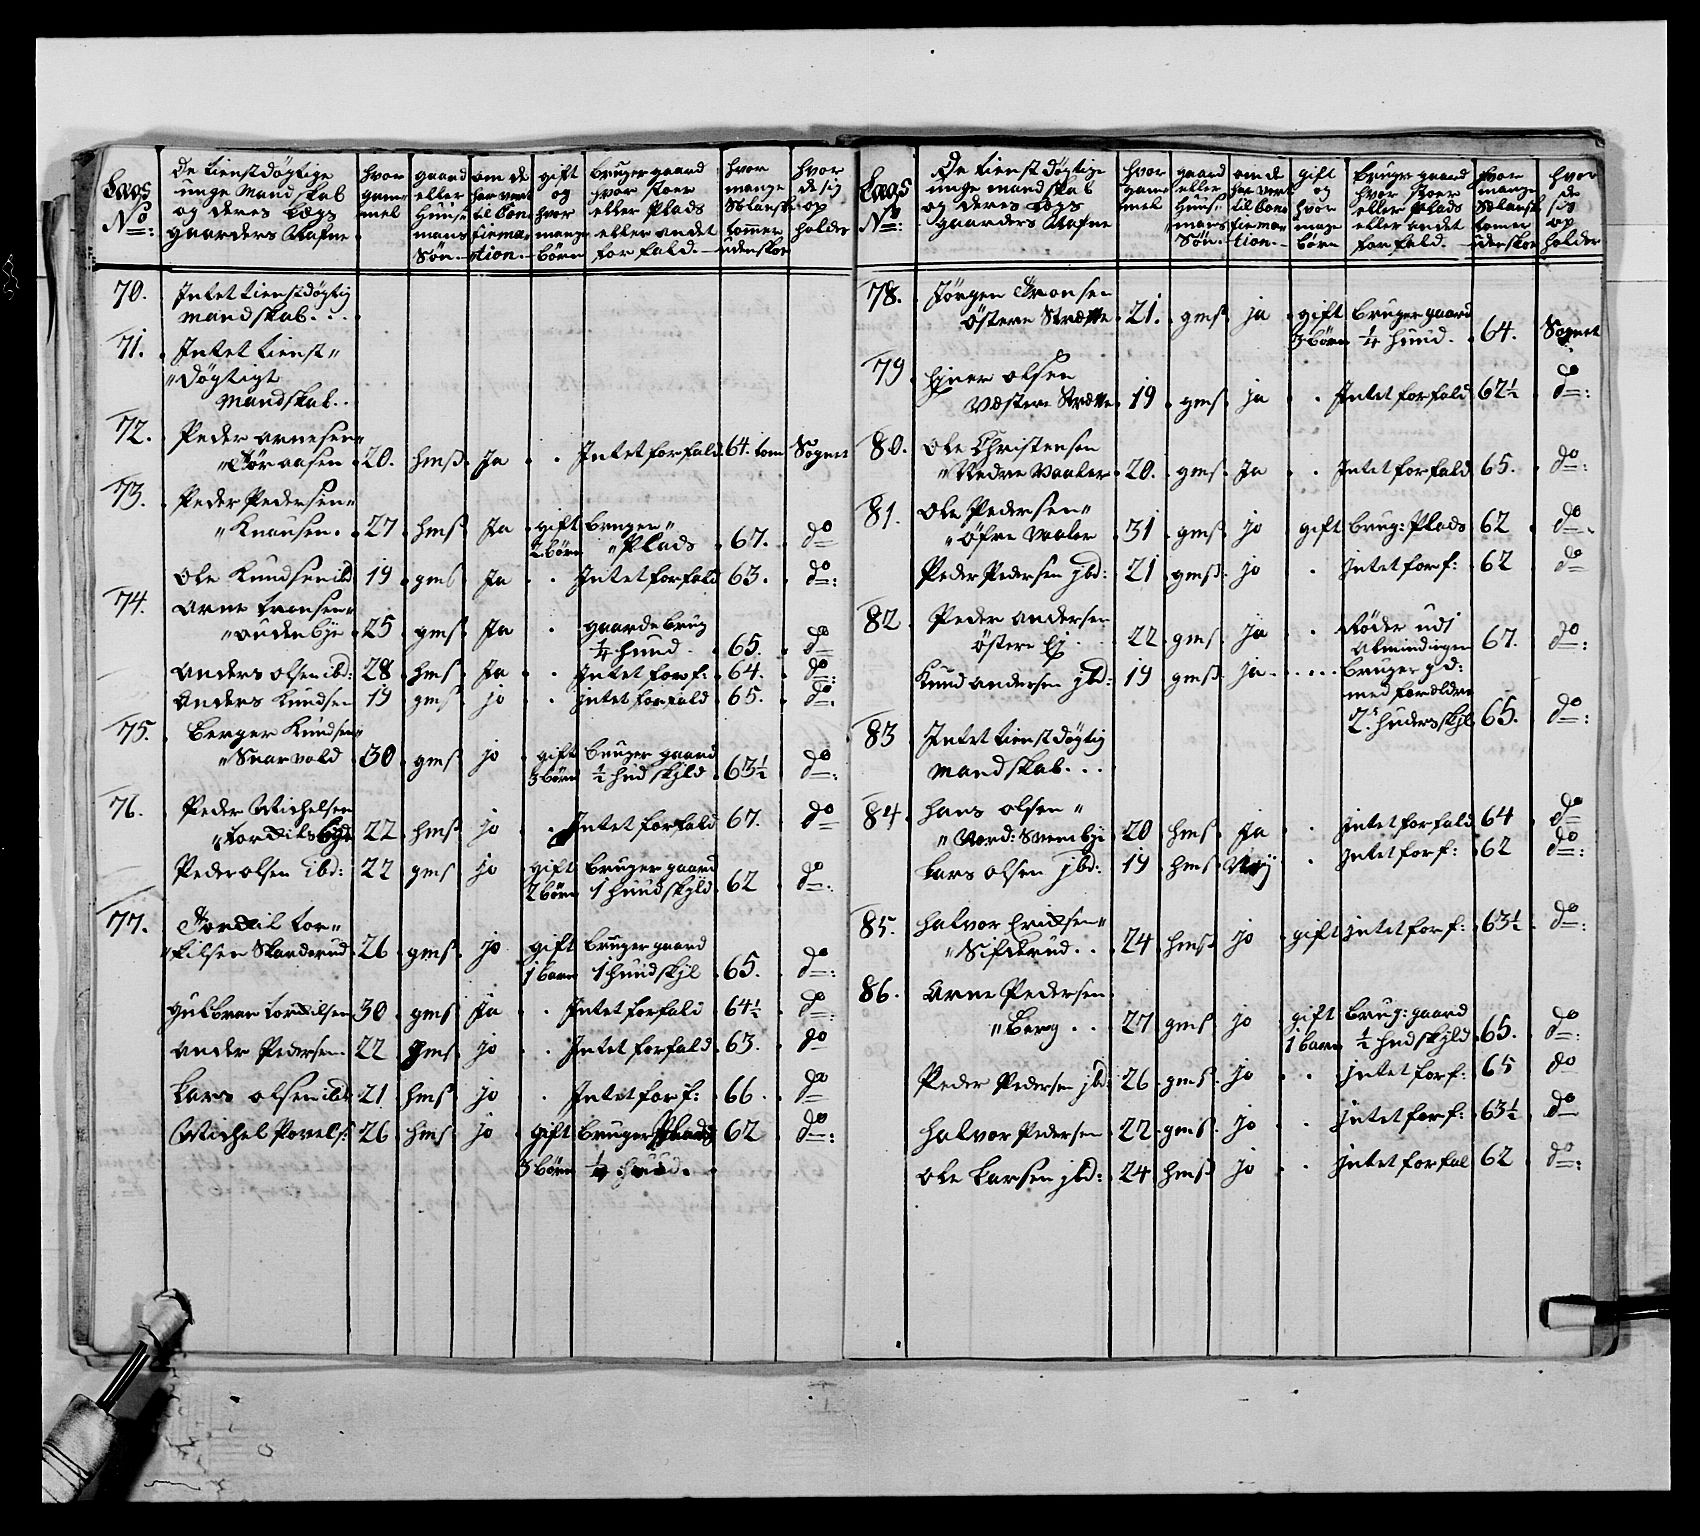 Lægs No:
De tienstdøgtige unge Mandskab og deres Lægs gaarders Nafne
hvor gammel
gaard eller huusmans Søn
om de har vært til Confirmation
gift og hvor mange børn
bruger gaard hvor stoer eller Plads eller andet forfald
hvor mange tommer uden skoe
hvor de sig op holder
70. Intet tienstdøgtig
mandskab . . .
71. Intet tienst"
"døgtigt
Mandskab . .
72. Peder Arnesen"
20. hmsß. Ja . . Intet forfald. 64. tom Sognet
73. Peder Pedersen"
27 hmß Ja gift bruger"
2 børn "Plads 67. do
Ole Knudsen ibd 19 gms Ja . . Intet forfald 63. do:
74. Arne
25 gmß. Ja . gaarde brug
1/4 hund. 65. do
Anders Olsen ibd: 28 hms. Ja . . Intet forf: 64. do:
Anders Knudsen 19 gmß jo . . intet forfald 65. do.
75. Berger Knudsen"
30 gmß. jo gift bruger gaard
3 børn 1/2 hud skyld 63 1/2 do:
76. Peder Michelsen
22 hmß. jo . . Intet forfald 67. do
Peder Olsen ibd: 22 gms jo gift bruger gaard
2 børn 1 huudskyld 62 do:
77. Tor"
"kilsen Skanderud 26 gmß. jo gift bruger gaard
1 barn 1 huudskyl 65. do:
Gulbran 30 gmß Ja . . Intet forfald 64 1/2 do:
Ander Pedersen. 22 gms. jo . . Intet forfald 63. do
Lars Olsen ibd 21 hmß. jo . . Intet forf: 66. do
Michel Povels: 26 hms jo gift bruger Plads 62 do:
3 børn 1/4 huud.
Lægs No:
De tienstdøgtige unge mandskab og deres Lægs gaarders Nafne
hvor gammel
gaard eller huusmans Søn
om de har vært til Confirmation
gift og hvor mange børn
bruger gaard hvor stoer eller Plads eller andet forfald.
hvor mange tomer uden skoe
hvor de sig op holder
78. Jørgen
Østere 21. gmß ja gift bruger gaard
3 børn 1/4 huud. 64. Sognet
79 Ejner Olsen
Væstere 19 gmß ja . . Intet forfald 62 1/2 do:
80. Ole Christensen
"Nedre Vaaler 20. gmß Ja . . Intet forfald 65. do:
81. Ole Pedersen"
"Øfre Vaaler 31 gmß jo gift brug: Plads 62 do.
Peder Pedersen jbd: 21 gmß. jo . intet forf: 62 do
82 Peder Andersen
Østere Ej 22 gmß ja . . Røder udj
Almindingen 67. do:
Knud Andersen jbd: 19 gmß ja . . . . bruger gd:
med forældre
2 huders skyl 65. do:
83 Intet tienstdøgtig
Mandskab . . .
84. Hans Olsen"
"Nord: 20 hmß Ja . . intet forfald 64 do
Lars Olsen jbd: 19 hmß Nej . intet forf: 62 do:
85. Halvor
24 hmß jo . gift intet forf: 63 1/2 do:
86. Arne Pedersen.
"Berg . . 27 gmß jo gift brug: gaard
1 barn 1/2 hudskyld. 65. do:
Peder Pedersen jbd: 26 gmß. jo . . intet forf: 65 do
Halvor Pedersen 22 gmß jo . . intet forf: 63 1/2 do
Ole Larsen jbd: 24 hmß jo . . intet forfal 62 do: